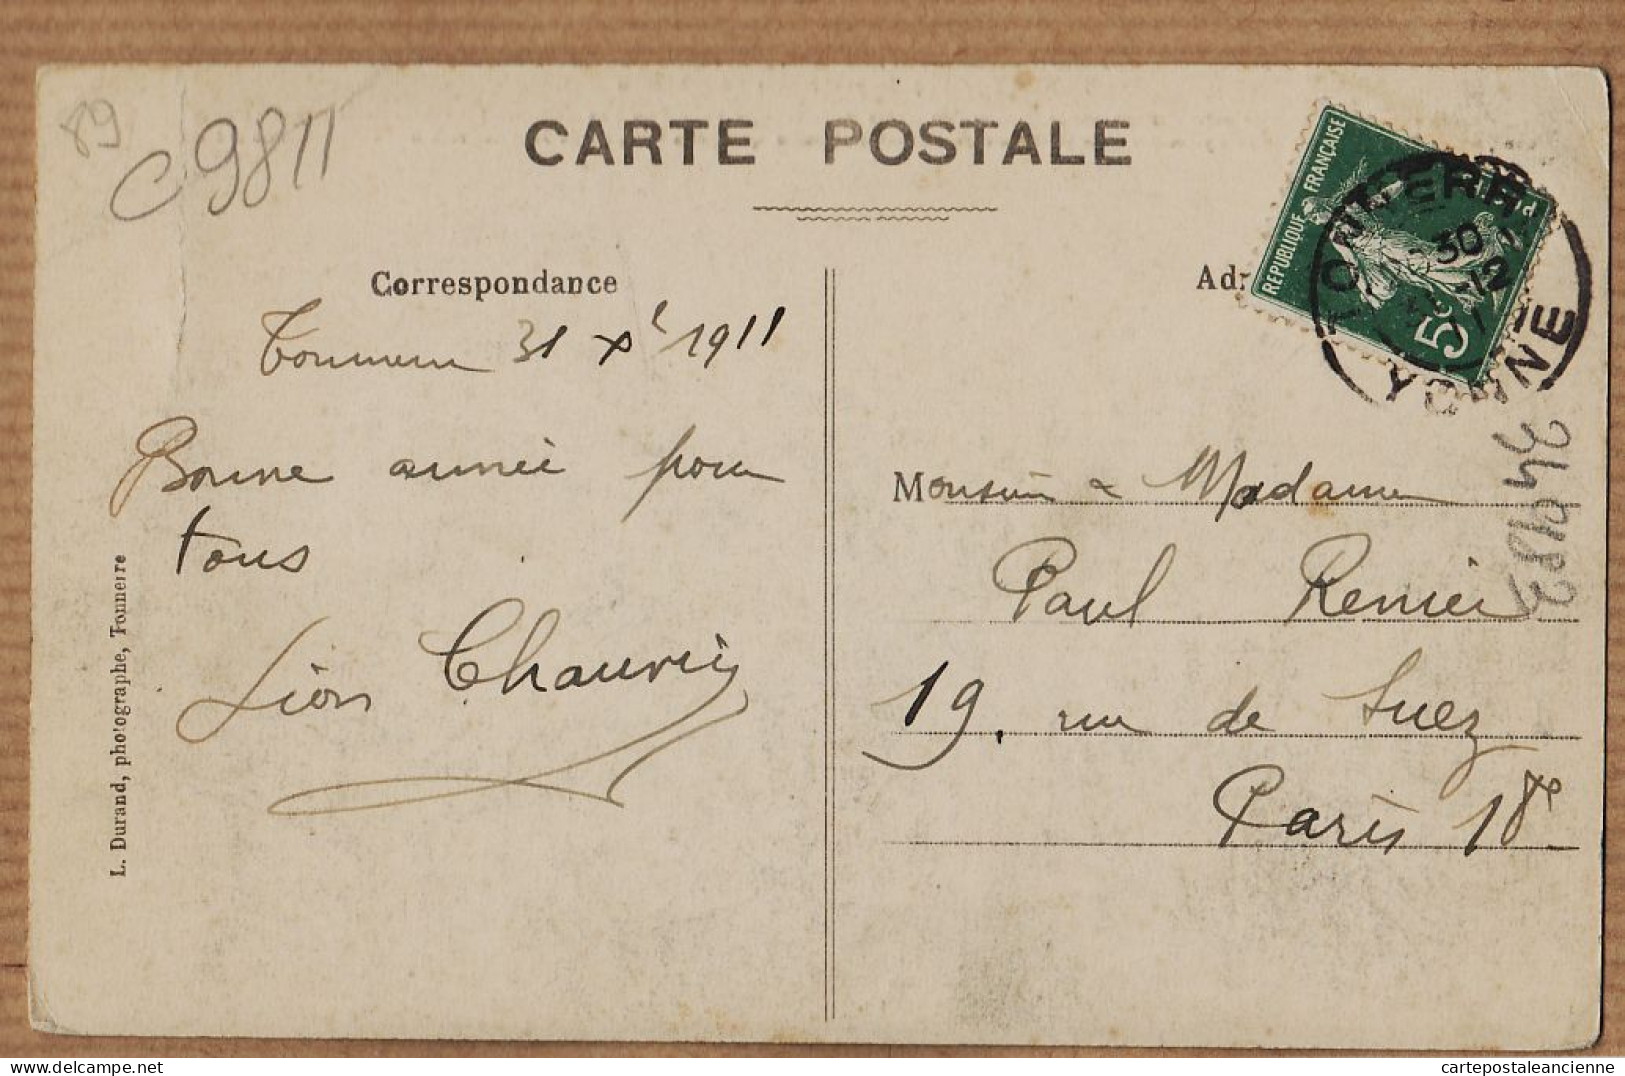 89
C9811
CARTE POSTALE
Correspondance
Ad
RÉPUBLIQUE FRANÇAISE
5c
TONNERRE
30
-12
11
YONNE
Tonnerre 31 Xe 1911
Bonne année pour
tous
Léon Chauvin
L. Durand, photographe, Tonnerre
Monsieur & Madame
Paul Renier
19, rue de Suez
Paris 18e
delcampe.net
cartepostaleancienne